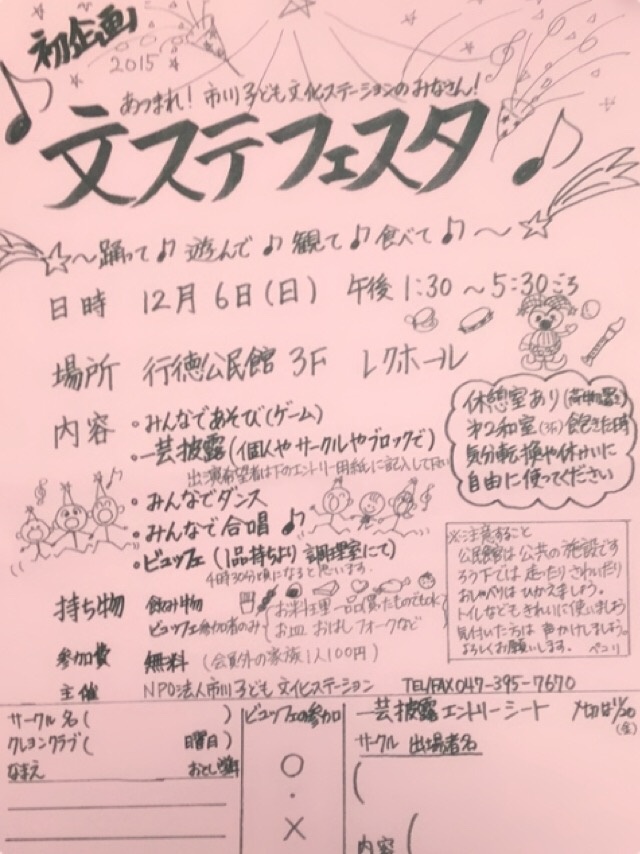 初企画
2015
あつまれ！市川子ども文化ステーションのみなさん！
文ステフェスタ
〜踊って♪遊んで♪観て♪食べて♪〜
日時 12月6日(日) 午後1:30〜5:30ごろ
場所 行徳公民館 3F レクホール
内容 ・みんなであそび(ゲーム)
・一芸披露(個人やサークルやブロックで)
出演希望者は下のエントリー用紙に記入して下さい
・みんなでダンス
・みんなで合唱♪
・ビュッフェ(1品持ちより 調理室にて)
4時30分頃になると思います.
休憩室あり(荷物置き)
第2和室(3F)飽きた時
気分転換や休けいに
自由に使ってください
※注意すること
公民館は公共の施設です
ろう下では走ったりさわいだり
おしゃべりはひかえましょう.
トイレなどもきれいに使いましょう
気付いた方は声かけしましょう.
よろしくお願いします. ペコリ
持ち物 飲み物
ビュッフェ参加者のみ お料理一品(買ったものでもOK)
お皿 おはし フォークなど
参加費 無料 (会員外の家族1人100円)
主催 NPO法人市川子ども文化ステーション TEL/FAX 047-395-7670
サークル名( )
クレヨンクラブ( 日曜日)
なまえ
ビュッフェの参加
○
・
×
一芸披露エントリーシート 〆切は11/20
(金)
サークル 出場者名
(
内容(